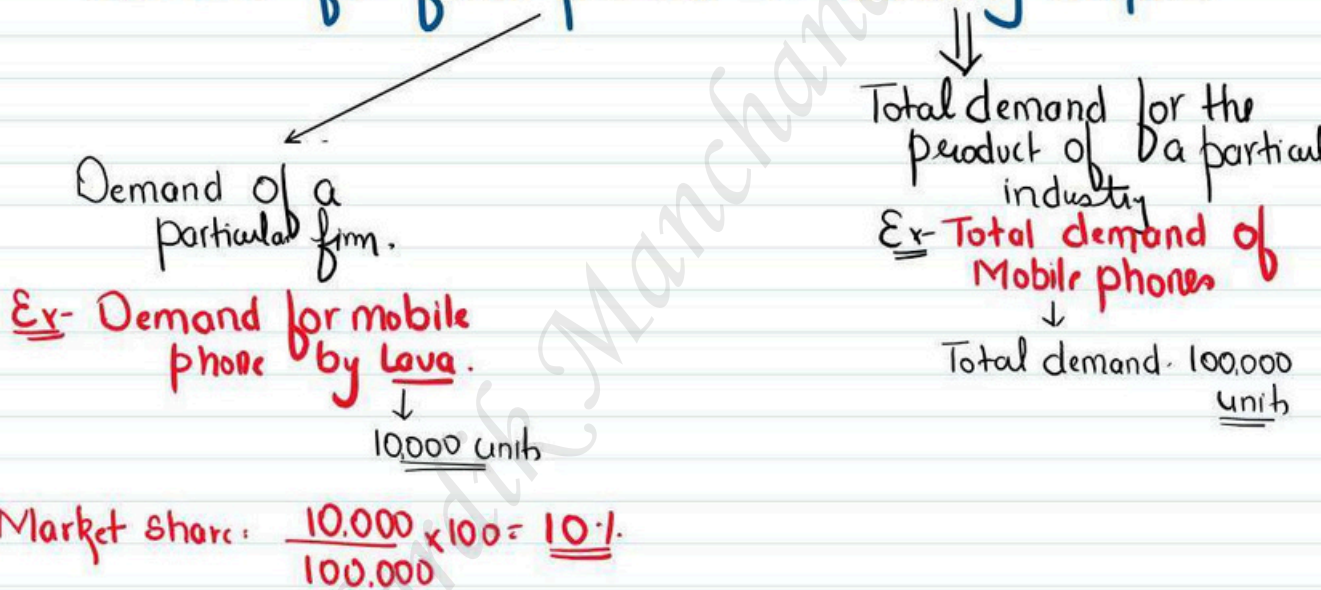 Demand of a
particular firm.
Ex- Demand for mobile
phone by Lava.
10,000 units
Market Share: 10,000 / 100,000 × 100 = 10%.
Total demand for the
product of a particul
industry
Ex- Total demand of
Mobile phones
Total demand. 100,000
units
Manchan